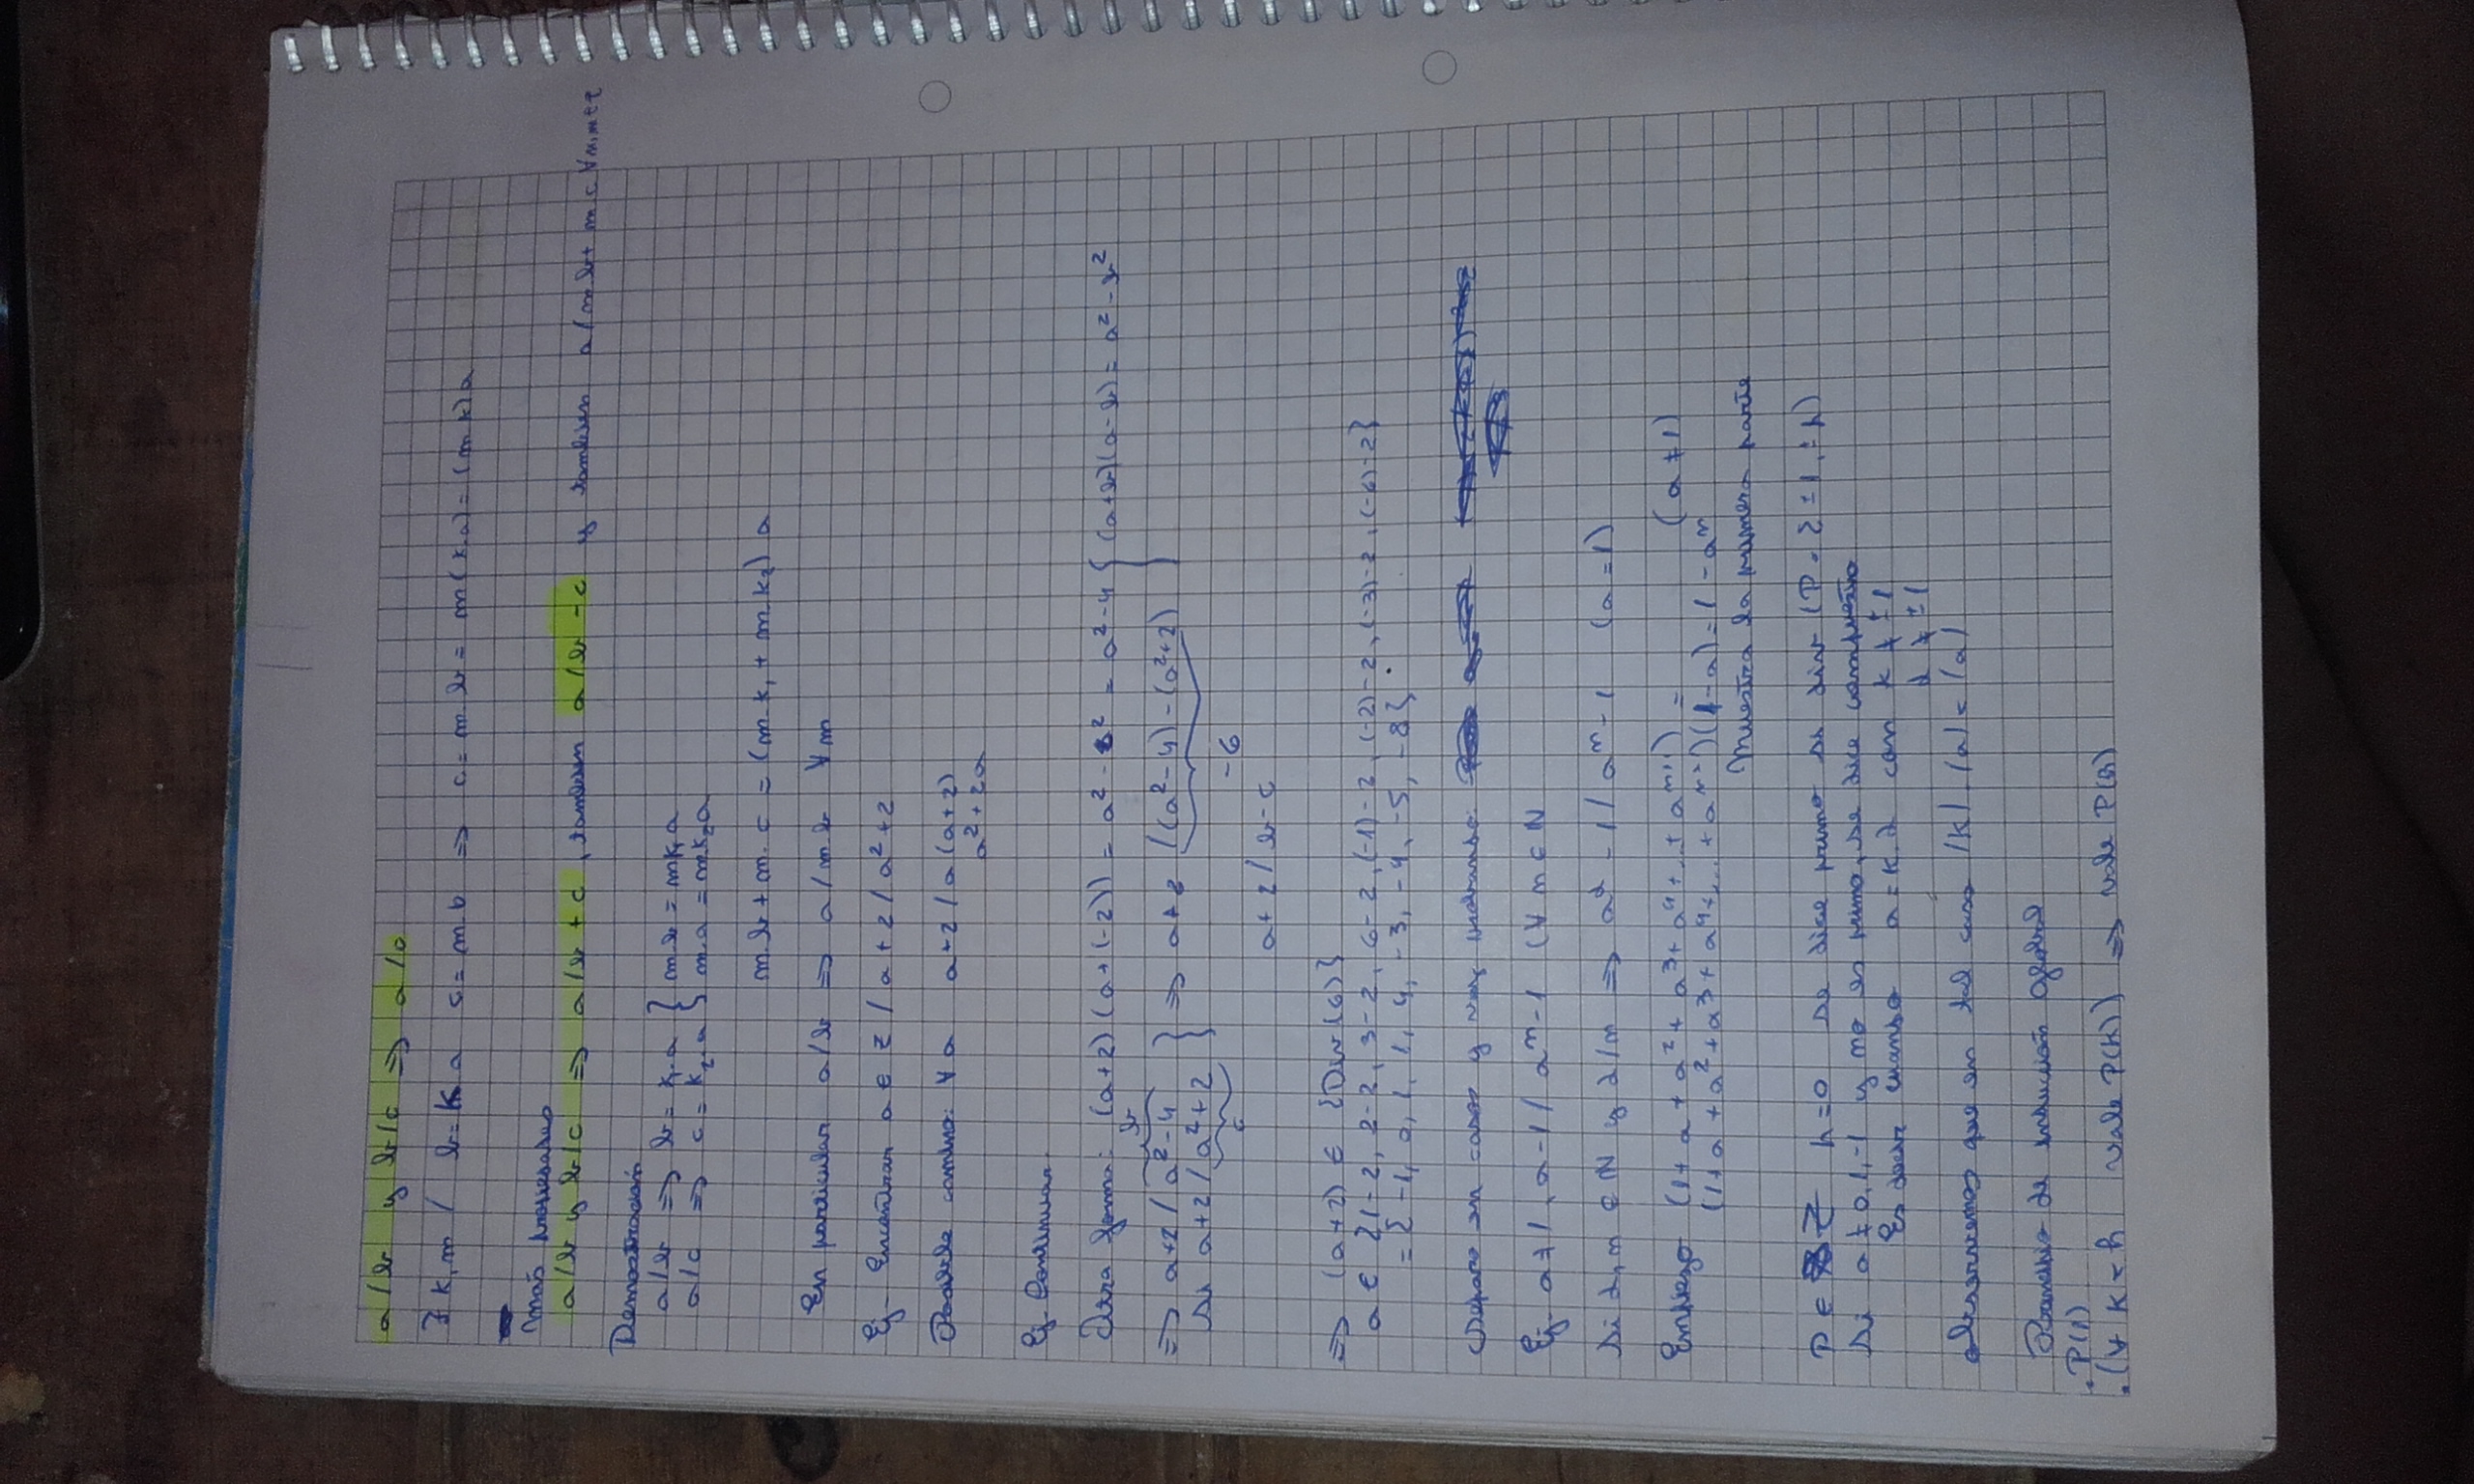 a/b y b/c ⇒ a/c
∃ k, m / b = k a c = m.b ⇒ c = m.b = m(k.a) = (m k) a
más propiedades
a/b y b/c ⇒ a/b + c, también a/b - c y también a/m b + m c ∀ n, m ∈ Z
Demostración
a/b ⇒ b = k₁.a } m.b = mk₁a
a/c ⇒ c = k₂.a } m.a = m.k₂a
m.b + m.c = (m.k₁ + m.k₂) a
En particular a/b ⇒ a/m.b ∀ m
Ej- Encontrar a ∈ Z / a + 2 / a² + 2
Posible camino: ∀ a a+2 / a (a+2)
a² + 2a
Ej- Continuar.
Otra forma: (a+2) (a+(-2)) = a² - 2² = a² - 4 { (a+b)(a-b) = a² - b²
b
⇒ a+2 / a² - 4 } ⇒ a+2 / (a²-4) - (a²+2)
Si a+2 / a² + 2
c -6
a+2 / b - c
⇒ (a+2) ∈ {Div(6)}
a ∈ {1-2, 2-2, 3-2, 6-2, (-1)-2, (-2)-2, (-3)-2, (-6)-2}
= {-1, 0, 1, 1, 4, -3, -4, -5, -8}
Separo en casos y voy probando:
Ej- a ≠ 1, a-1 / aⁿ-1 (∀ n ∈ N
Si d, n ∈ N y d/n ⇒ aᵈ - 1 / aⁿ - 1 (a = 1)
Empiezo (1 + a + a² + a³ + a⁴ + ... + aⁿ⁻¹) = (a ≠ 1)
(1 + a + a² + a³ + a⁴ + ... + aⁿ⁻¹)(1-a) = 1 - aⁿ
Muestra la primera parte
P ∈ Z h=0 se dice primo si div (P = {±1, ±h)
Si a ≠ 0, 1, -1 y no es primo, se dice compuesto
Es decir cuando a = k.d con k ≠ ±1
d ≠ ±1
observemos que en tal caso |k|. |a| < |a|
Principio de inducción global
. P(1)
. (∀ k < h vale P(k)) ⇒ vale P(h)